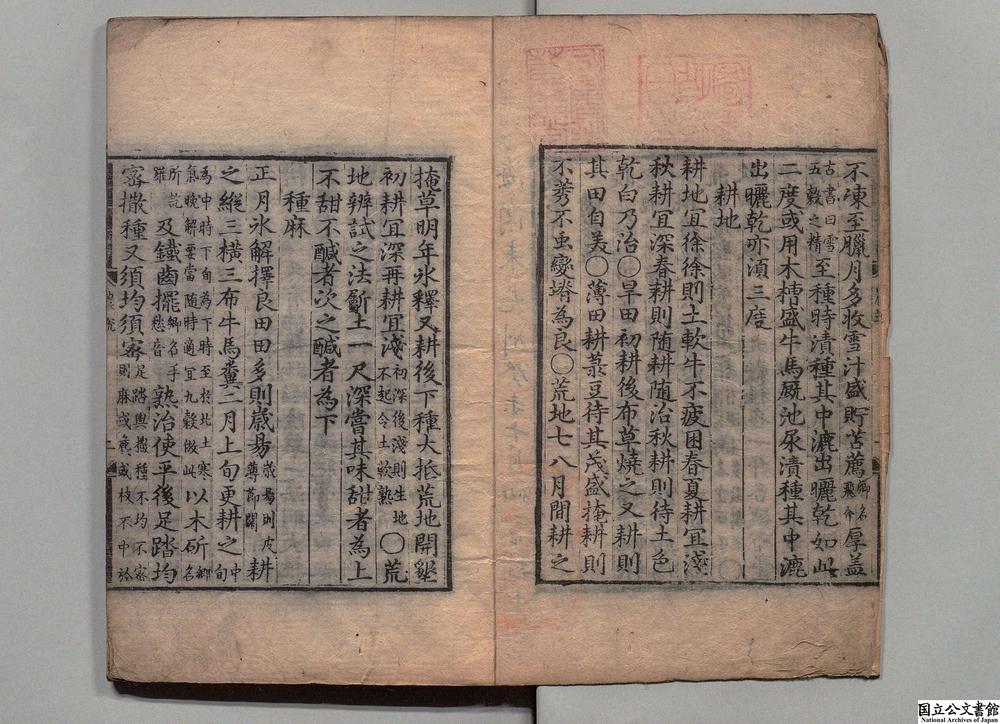 不凍至臘月多收雪汁盛貯苫薦鄕名飛介厚盖
古書曰雪五穀之精至種時漬種其中漉出曬乾如此
二度或用木槽盛牛馬厩池尿漬種其中漉
出曬乾亦須三度
耕地
耕地宜徐徐則土軟牛不疲困春夏耕宜淺
秋耕宜深春耕則随耕随治秋耕則待土色
乾白乃治〇旱田初耕後布草燒之又耕則
其田自美〇薄田耕菉豆待其茂盛掩耕則
不莠不虫變塉為良〇荒地七八月間耕之
掩草明年氷釋又耕後下種大抵荒地開墾
初耕宜深再耕宜淺初深後淺則生地不起令土軟熟〇荒
地辨試之法斸土一尺深嘗其味甜者為上
不甜不鹹者次之鹹者為下
種麻
正月氷解擇良田田多則歲易歲易則皮薄節闊耕
之縱三橫三布牛馬糞二月上旬更耕之中旬
為中時下旬為下時至於北土寒氣晚解要當隨時適宜九穀倣此以木斫鄕名
所訖羅及鐵齒擺鄕名手愁音熟治使平後足踏均
密撒種又須均須密足踏與撒種不均不密則麻或麁或枝不中於
国立公文書館
National Archives of Japan